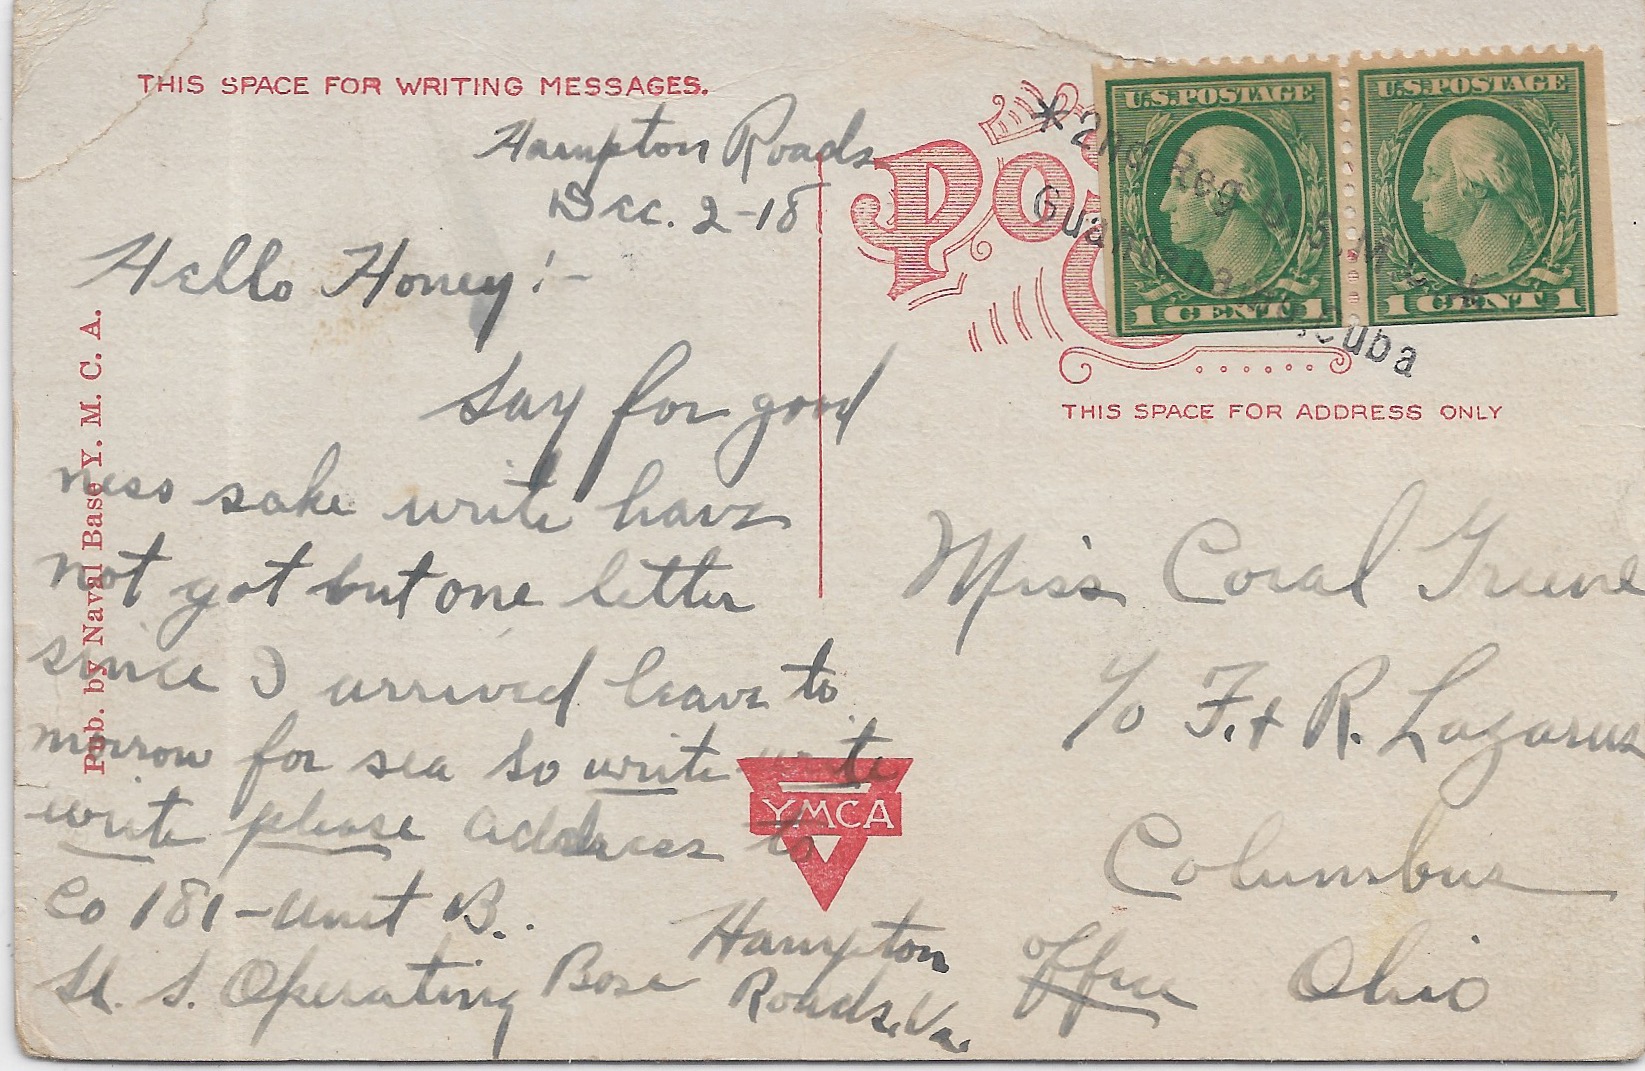 THIS SPACE FOR WRITING MESSAGES.
Hampton Roads
Dec. 2-18
Hello Honey!-
Say for good
ness sake write have
not got but one letter
since I arrived leave to
morrow for sea so write write
write please address to
Co 181-Unit B.
U. S. Operating Base Hampton
Roads, Va.
Pub. by Naval Base Y. M. C. A.
YMCA
Pos
U.S.POSTAGE
1 CENT 1
U.S.POSTAGE
1 CENT 1
*2nd Reg U.S.M.C.*
Guantanamo, Cuba
THIS SPACE FOR ADDRESS ONLY
Miss Coral Greene
c/o F. & R. Lazarus
Columbus
Office Ohio